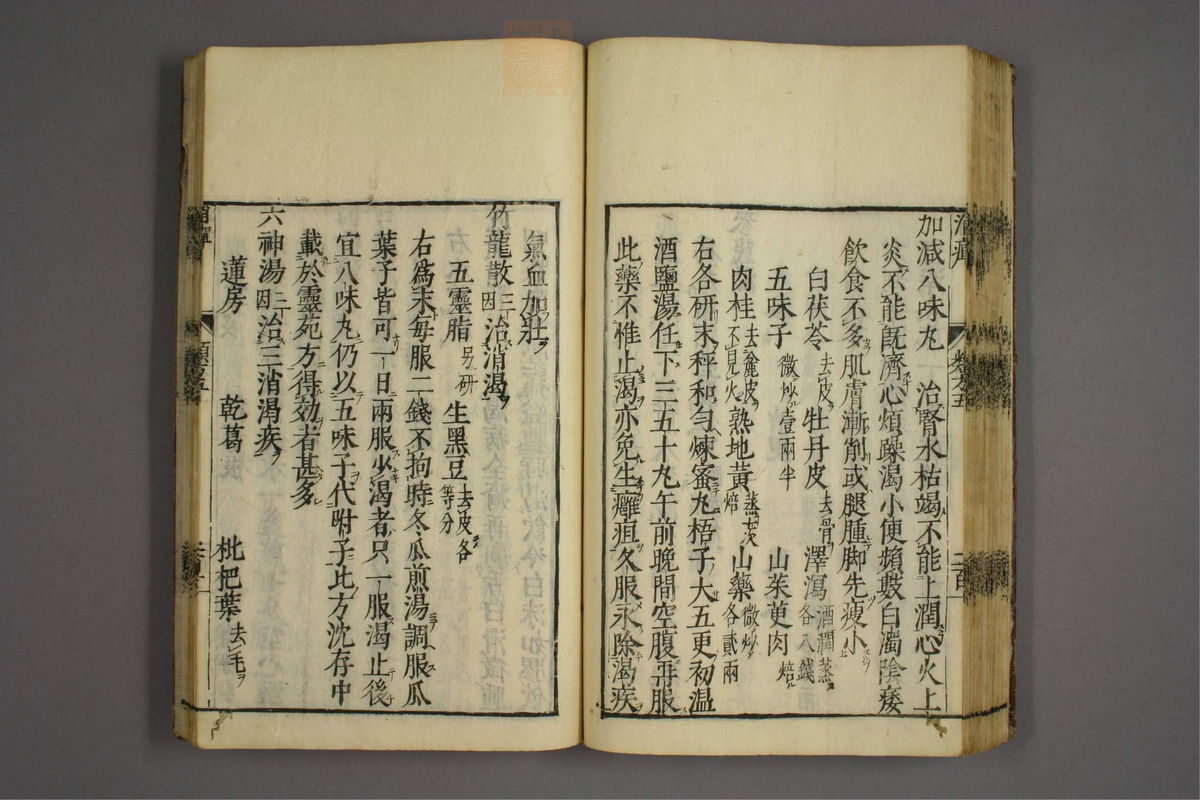 加減八味丸 一 治腎水枯竭不能上潤心火上
炎不能既濟心煩躁渴小便頻數白濁陰痿
飲食不多肌膚漸削或腿腫脚先瘦小
白茯苓 去皮 牡丹皮 去骨 澤瀉 酒潤蒸各八錢
五味子 微炒壹兩半 山茱萸肉 焙
肉桂 去麄皮不見火 熟地黃 蒸七次焙 山藥 微炒各貳兩
右各研末秤和勻煉蜜丸梧子大五更初温
酒鹽湯任下三五十丸午前晚間空腹再服
此藥不惟止渴亦免生癰疽久服永除渴疾
氣血加壯
竹龍散 二因 治消渴
五靈脂 另研 生黑豆 去皮各等分
右爲末每服二錢不拘時冬瓜煎湯調服瓜
葉子皆可一日兩服少渴者只一服渴止後
宜八味丸仍以五味子代附子此方沈存中
載於靈苑方得効者甚多
六神湯 二因 治三消渴疾
蓮房 乾葛 枇杷葉 去毛